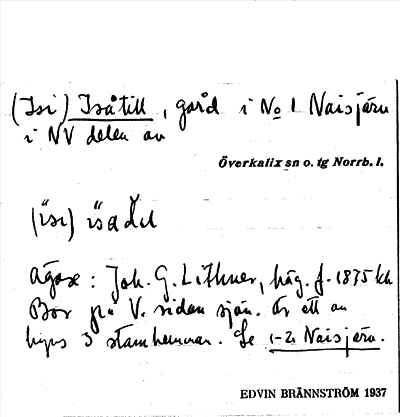 (Isi) Isåtill, gård i No 1 Naisjärv
i NV delen av
Överkalix sn o. tg Norrb. l.
Ägare: Joh. G. Lithner, häg. f. 1875 kh
Bor på V. sidan sjön. Är ett av
byns 3 stamhemman. Se 1-2 Naisjärv.
EDVIN BRÄNNSTRÖM 1937